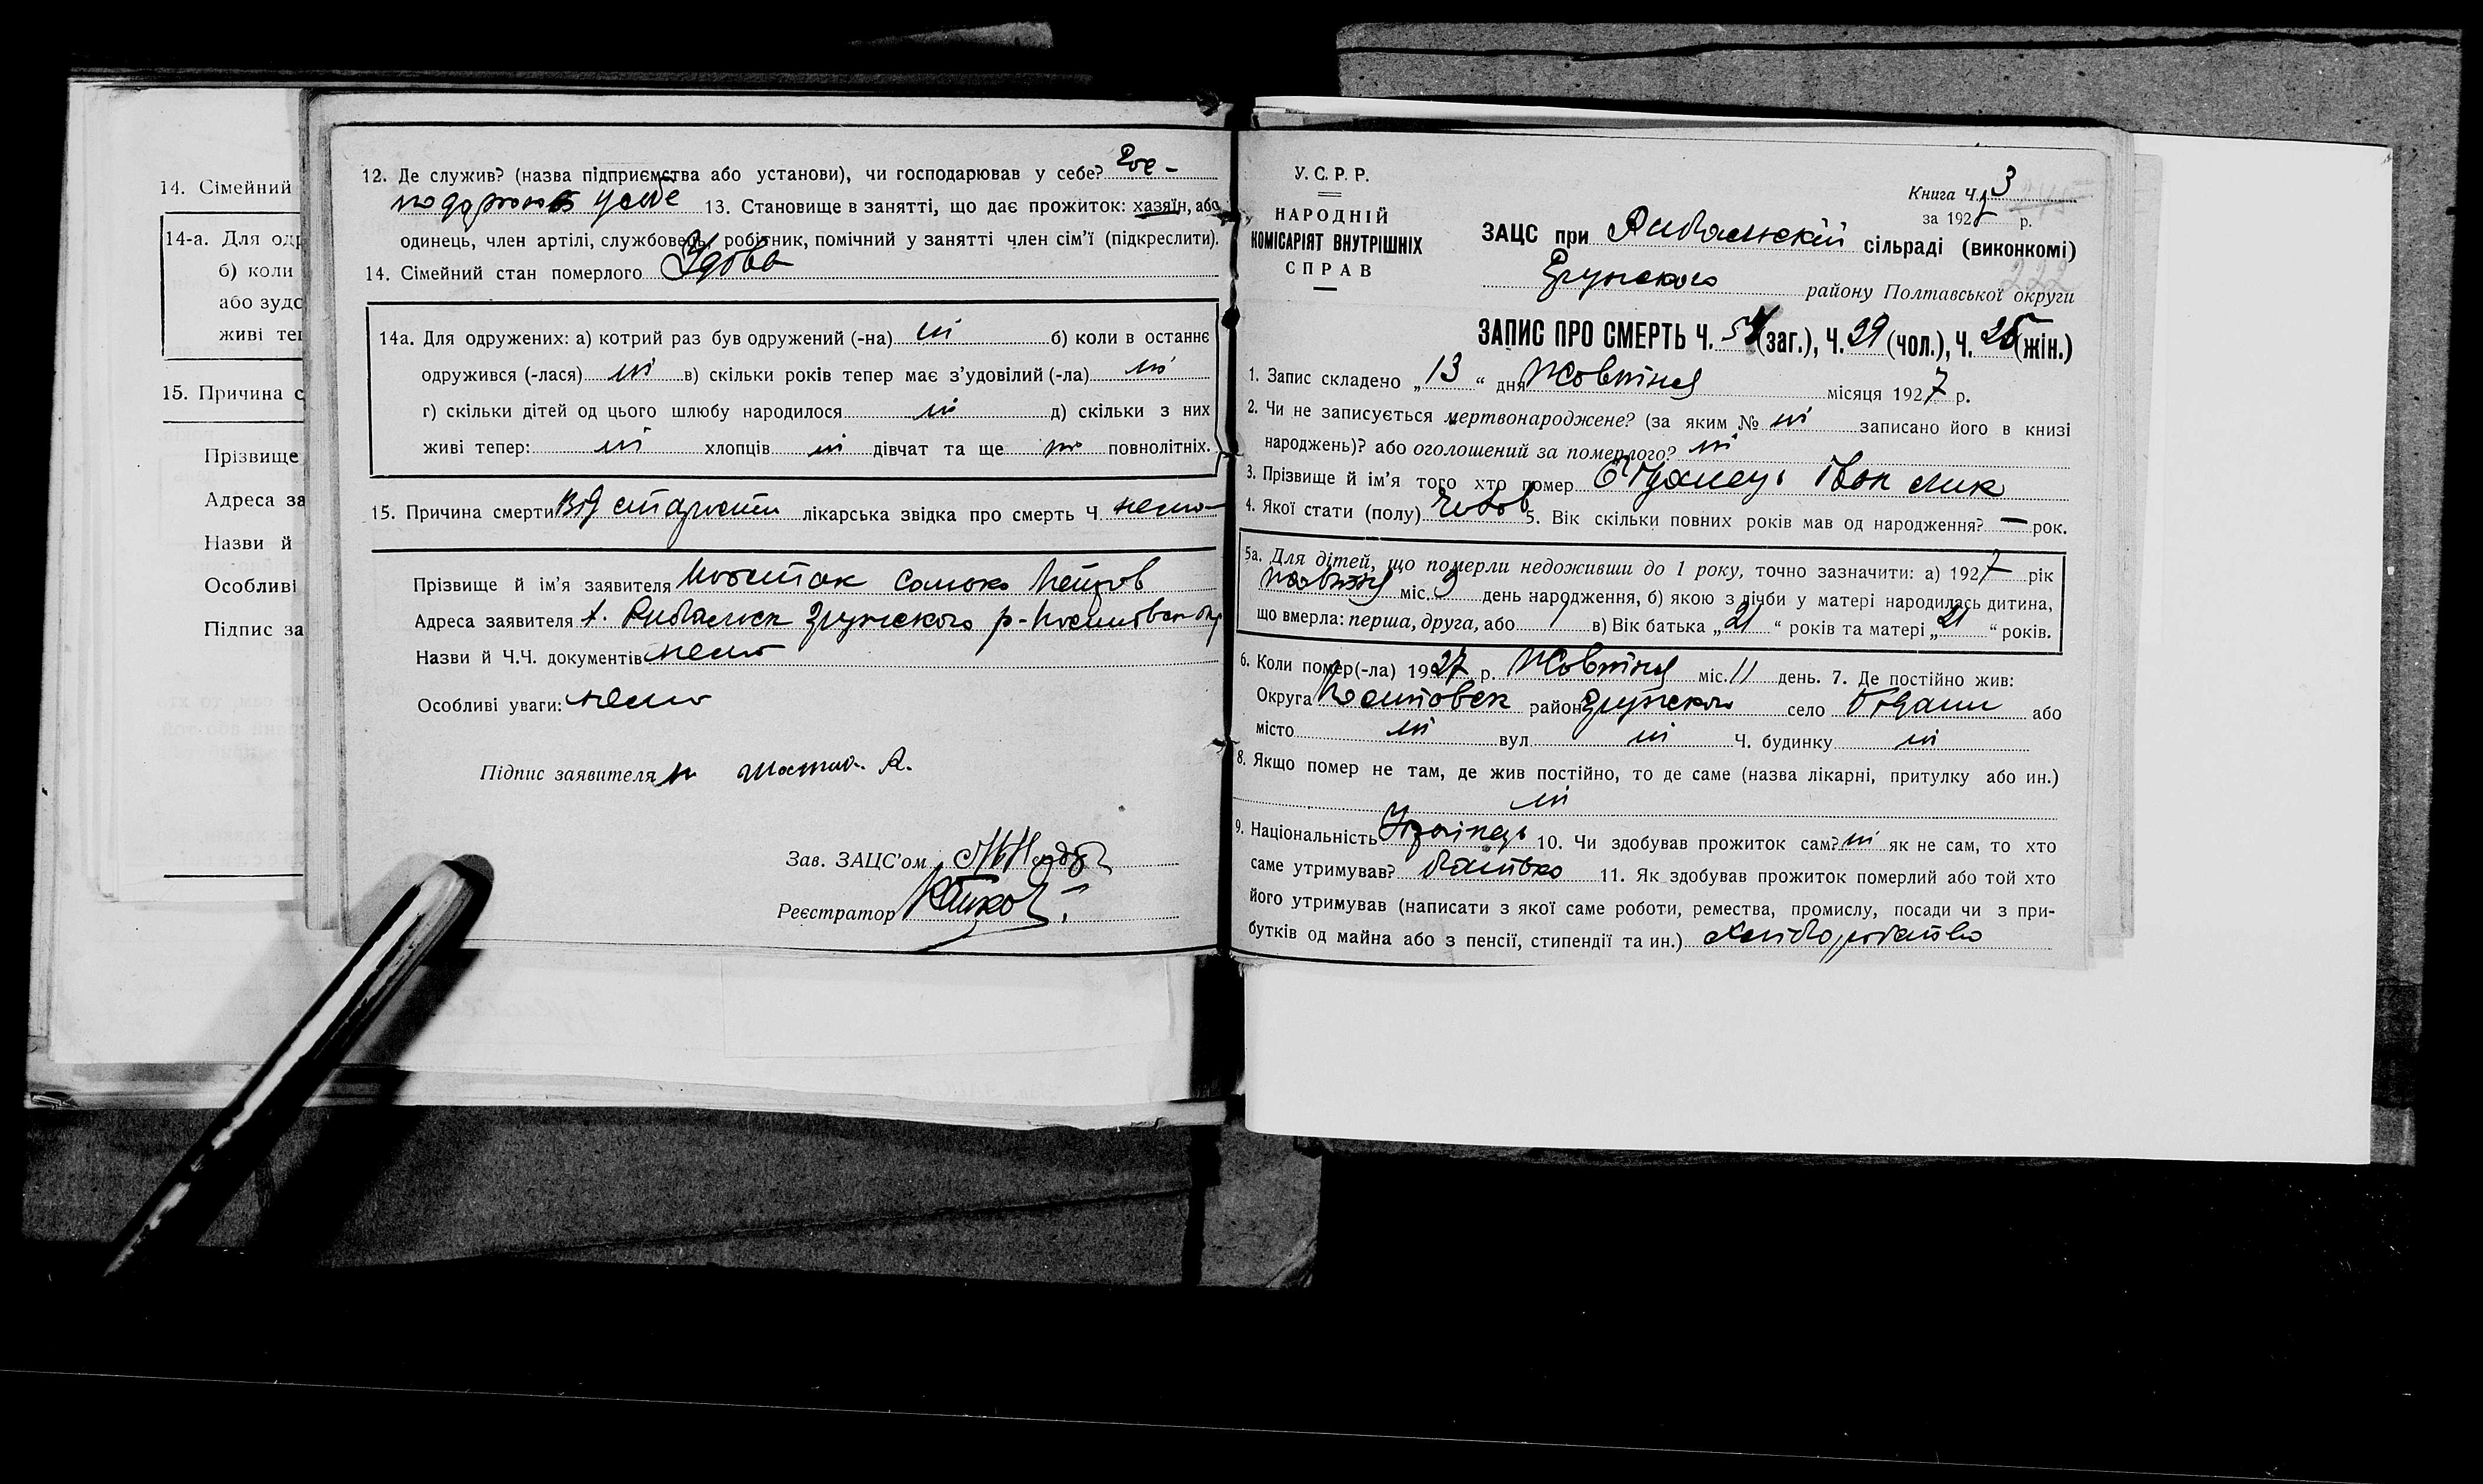 14. Сімейний
14-а. Для одр
б) коли
або зудо
живі теп
15. Причина с
Прізвище
Адреса за
Назви й
Особливі
Підпис за
12. Де служив? (назва підприємства або установи), чи господарював у себе? Гос-
подарював у себе 13. Становище в занятті, що дає прожиток: хазяїн, або
одинець, член артілі, службовець, робітник, помічний у занятті член сім’ї (підкреслити).
14. Сімейний стан померлого Удова
14а. Для одружених: а) котрий раз був одружений (-на) ні б) коли в останнє
одружився (-лася) ні в) скільки років тепер має з’удовілий (-ла) ні
г) скільки дітей од цього шлюбу народилося ні д) скільки з них
живі тепер: ні хлопців ні дівчат та ще ні повнолітніх.
15. Причина смерти Від старости лікарська звідка про смерть Ч. нема
Прізвище й ім’я заявителя Самоко Петров
Адреса заявителя х. Рибальск Грунского р- Полтавск окр
Назви й Ч.Ч. документів нема
Особливі уваги: нема
Підпис заявителя
Зав. ЗАЦС’ом
Реєстратор
У. С. Р. Р.
НАРОДНІЙ
КОМІСАРІЯТ ВНУТРІШНІХ
СПРАВ
Книга Ч. 3
за 1927 р.
ЗАЦС при Рибальській сільраді (виконкомі)
Грунского району Полтавської округи
222
ЗАПИС ПРО СМЕРТЬ Ч. 54 (заг.), Ч. 29 (чол.), Ч. 25 (жін.)
1. Запис складено „13“ дня Жовтня місяця 1927 р.
2. Чи не записується мертвонароджене? (за яким № ні записано його в книзі
народжень)? або оголошений за померлого? ні
3. Прізвище й ім’я того хто помер Іван
4. Якої стати (полу) Чолов 5. Вік скільки повних років мав од народження? — рок.
5а. Для дітей, що померли недоживши до 1 року, точно зазначити: а) 1927 рік
Жовтня міс. 9 день народження, б) якою з лічби у матері народилась дитина,
що вмерла: перша, друга, або 1 в) Вік батька „21“ років та матері „21“ років.
6. Коли помер(-ла) 1927 р. Жовтня міс. 11 день. 7. Де постійно жив:
Округа Полтавск район Грунского село або
місто ні вул. ні Ч. будинку ні
8. Якщо помер не там, де жив постійно, то де саме (назва лікарні, притулку або ин.)
ні
9. Національність Українець 10. Чи здобував прожиток сам? ні як не сам, то хто
саме утримував? батько 11. Як здобував прожиток померлий або той хто
його утримував (написати з якої саме роботи, ремества, промислу, посади чи з при-
бутків од майна або з пенсії, стипендії та ин.) Хліборобство